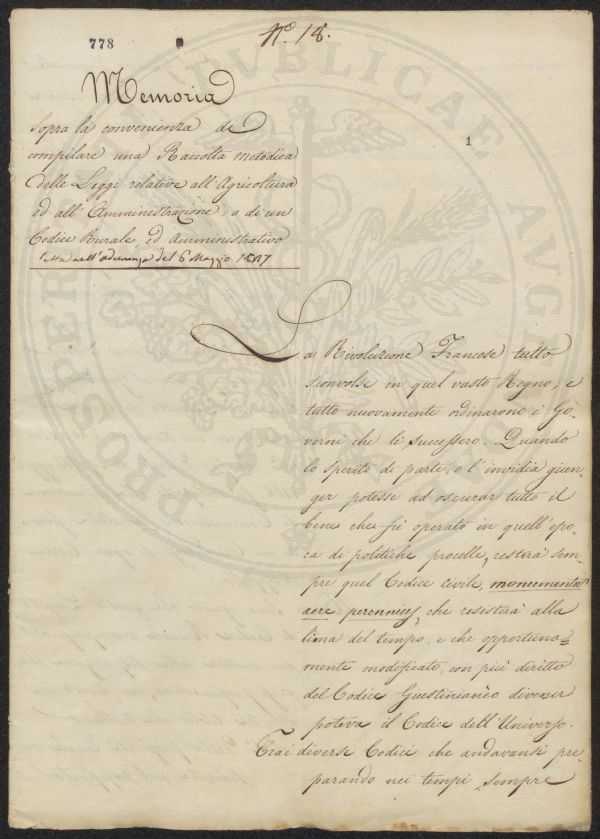 778
N.º 18.
1
Memoria
sopra la convenienza di
compilare una Raccolta metodica
delle Leggi relative all'Agricoltura
ed all'Amministrazione, o di un
Codice Rurale, ed Amministrativo
letta nell'adunanza del 6 Maggio
La Rivoluzione Francese tutto
sconvolse in quel vasto Regno, e
tutto nuovamente ordinarono i Go-
verni che li successero. Quando
lo spirito di parte, o l'invidia giun-
ger potesse ad oscurar tutto il
bene che fù operato in quell'epo-
ca di politiche procelle, resterà sem-
pre quel Codice civile, monumentum
aere perennius, che resisterà alla
lima del tempo, e che opportuna=
mente modificato, con più diritto
del Codice Giustinianèo divenir
poteva il Codice dell'Universo.
Trai diversi Codici che andavansi pre
parando nei tempi sempre
PROSPERITATI PVBLICAE AVG